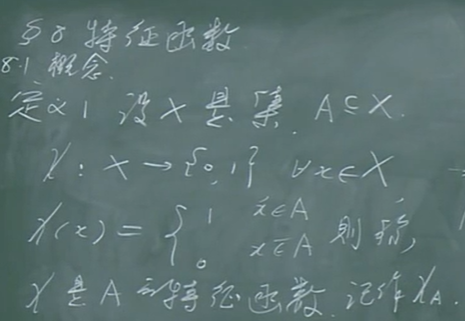 §8 特征函数
8.1 概念.
定义1 设X是集, A⊆X.
χ: X→{0,1} ∀x∈X
χ(x) = { 1 x∈A
0 x∉A 则称,
χ是A的特征函数. 记作χ_A.